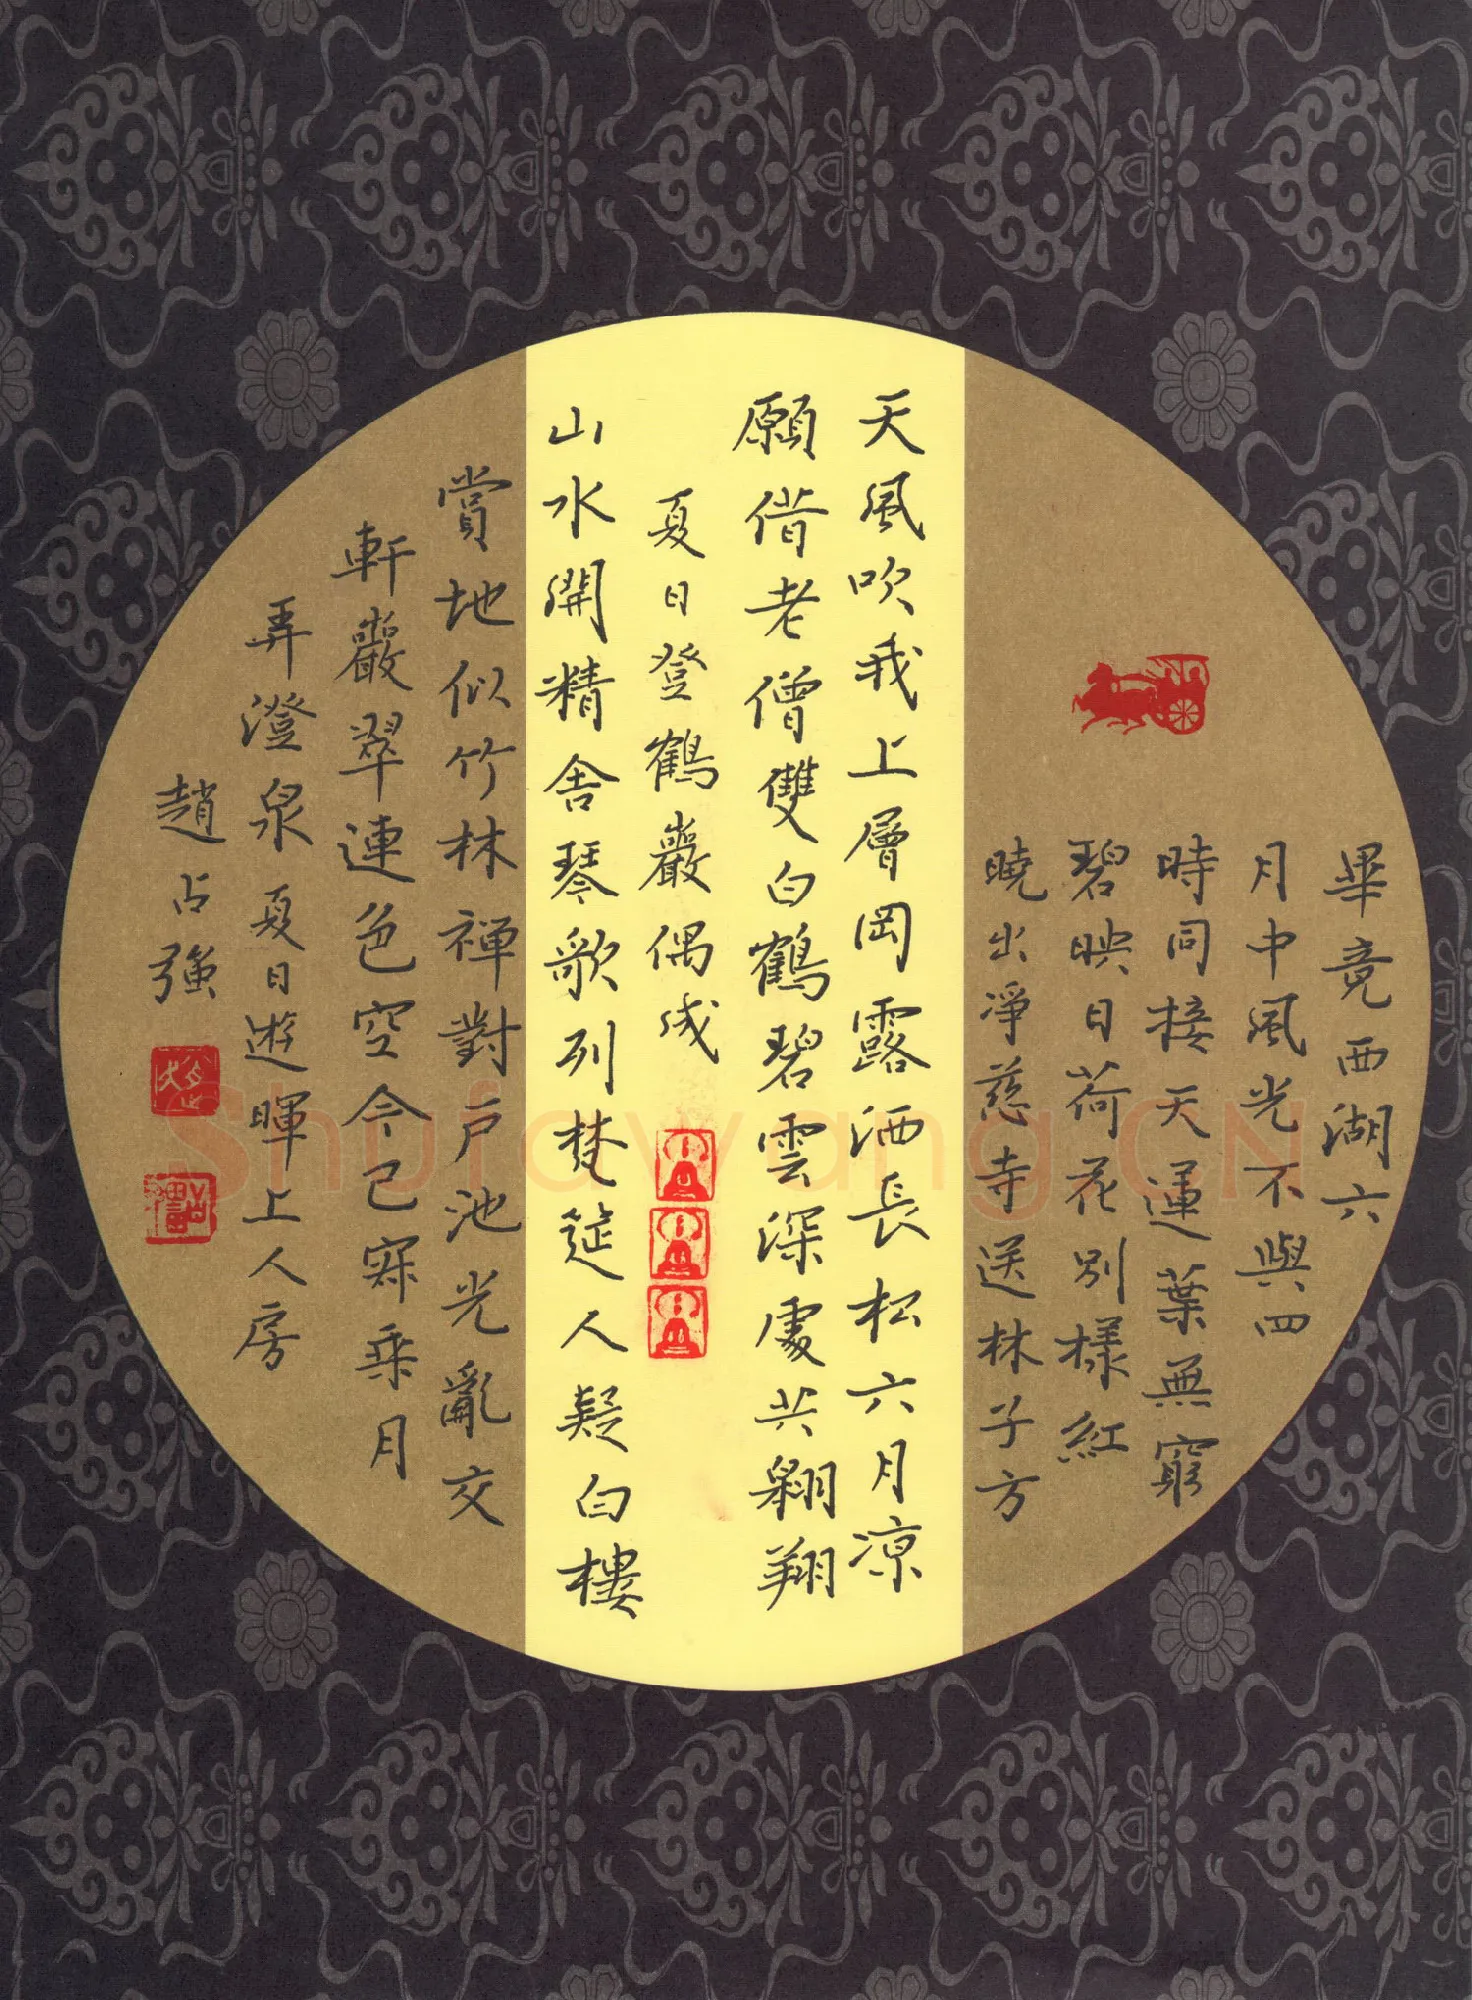 畢竟西湖六
月中風光不與四
時同接天蓮葉無窮
碧映日荷花別樣紅
曉出淨慈寺送林子方
天風吹我上層岡露洒長松六月凉
願借老僧雙白鶴碧雲深處共翱翔
夏日登鶴巖偶成
山水開精舍琴歌列梵筵人疑白樓
賞地似竹林禅對户池光亂交
軒巖翠連色空今已寂乘月
弄澄泉夏日遊暉上人房
趙占強
Shufawang.CN